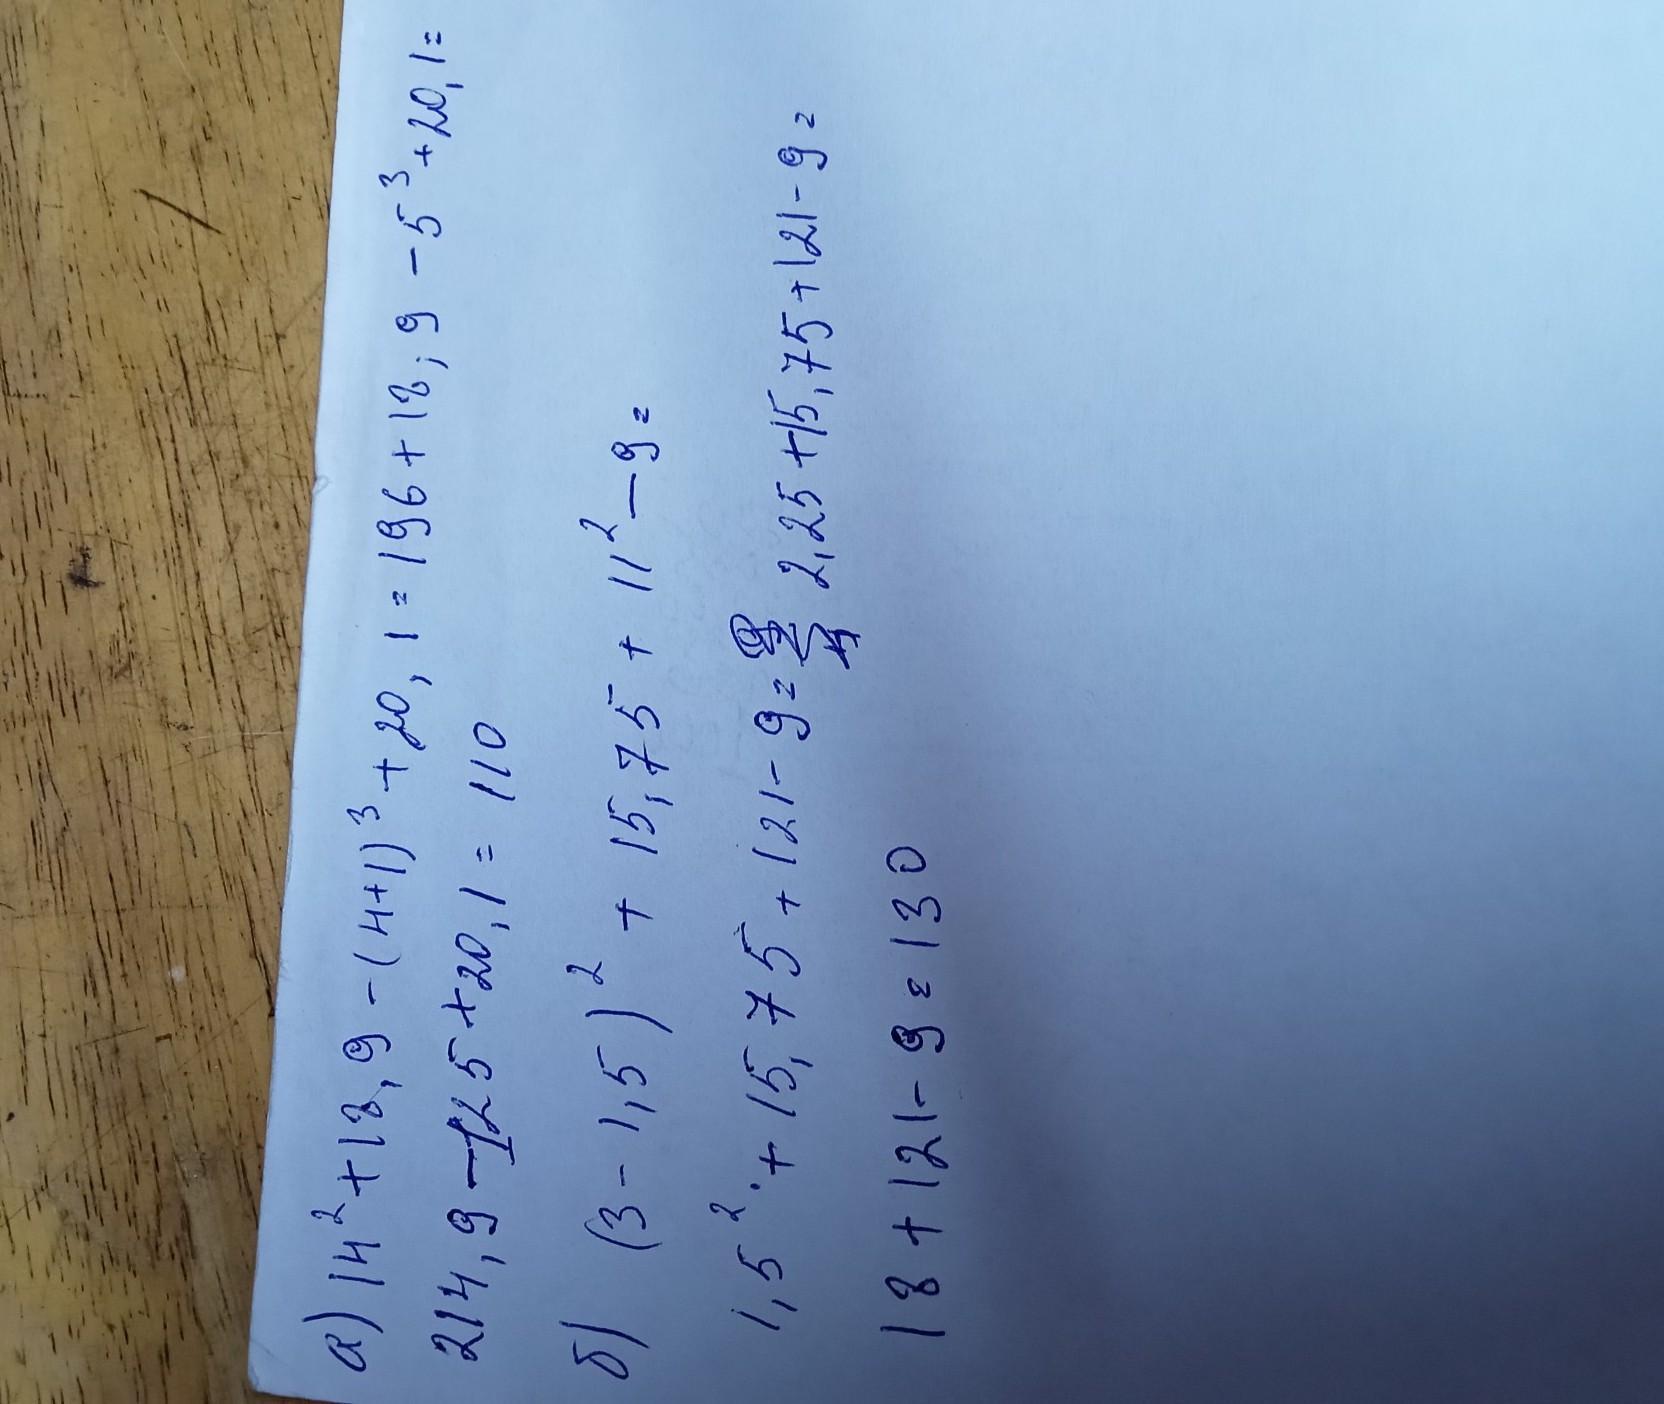 а) 14² + 18,9 - (4+1)³ + 20,1 = 196 + 18,9 - 5³ + 20,1 =
214,9 - 125 + 20,1 = 110
б) (3 - 1,5)² + 15,75 + 11² - 9 =
1,5² + 15,75 + 121 - 9 = 2,25 + 15,75 + 121 - 9 =
18 + 121 - 9 = 130